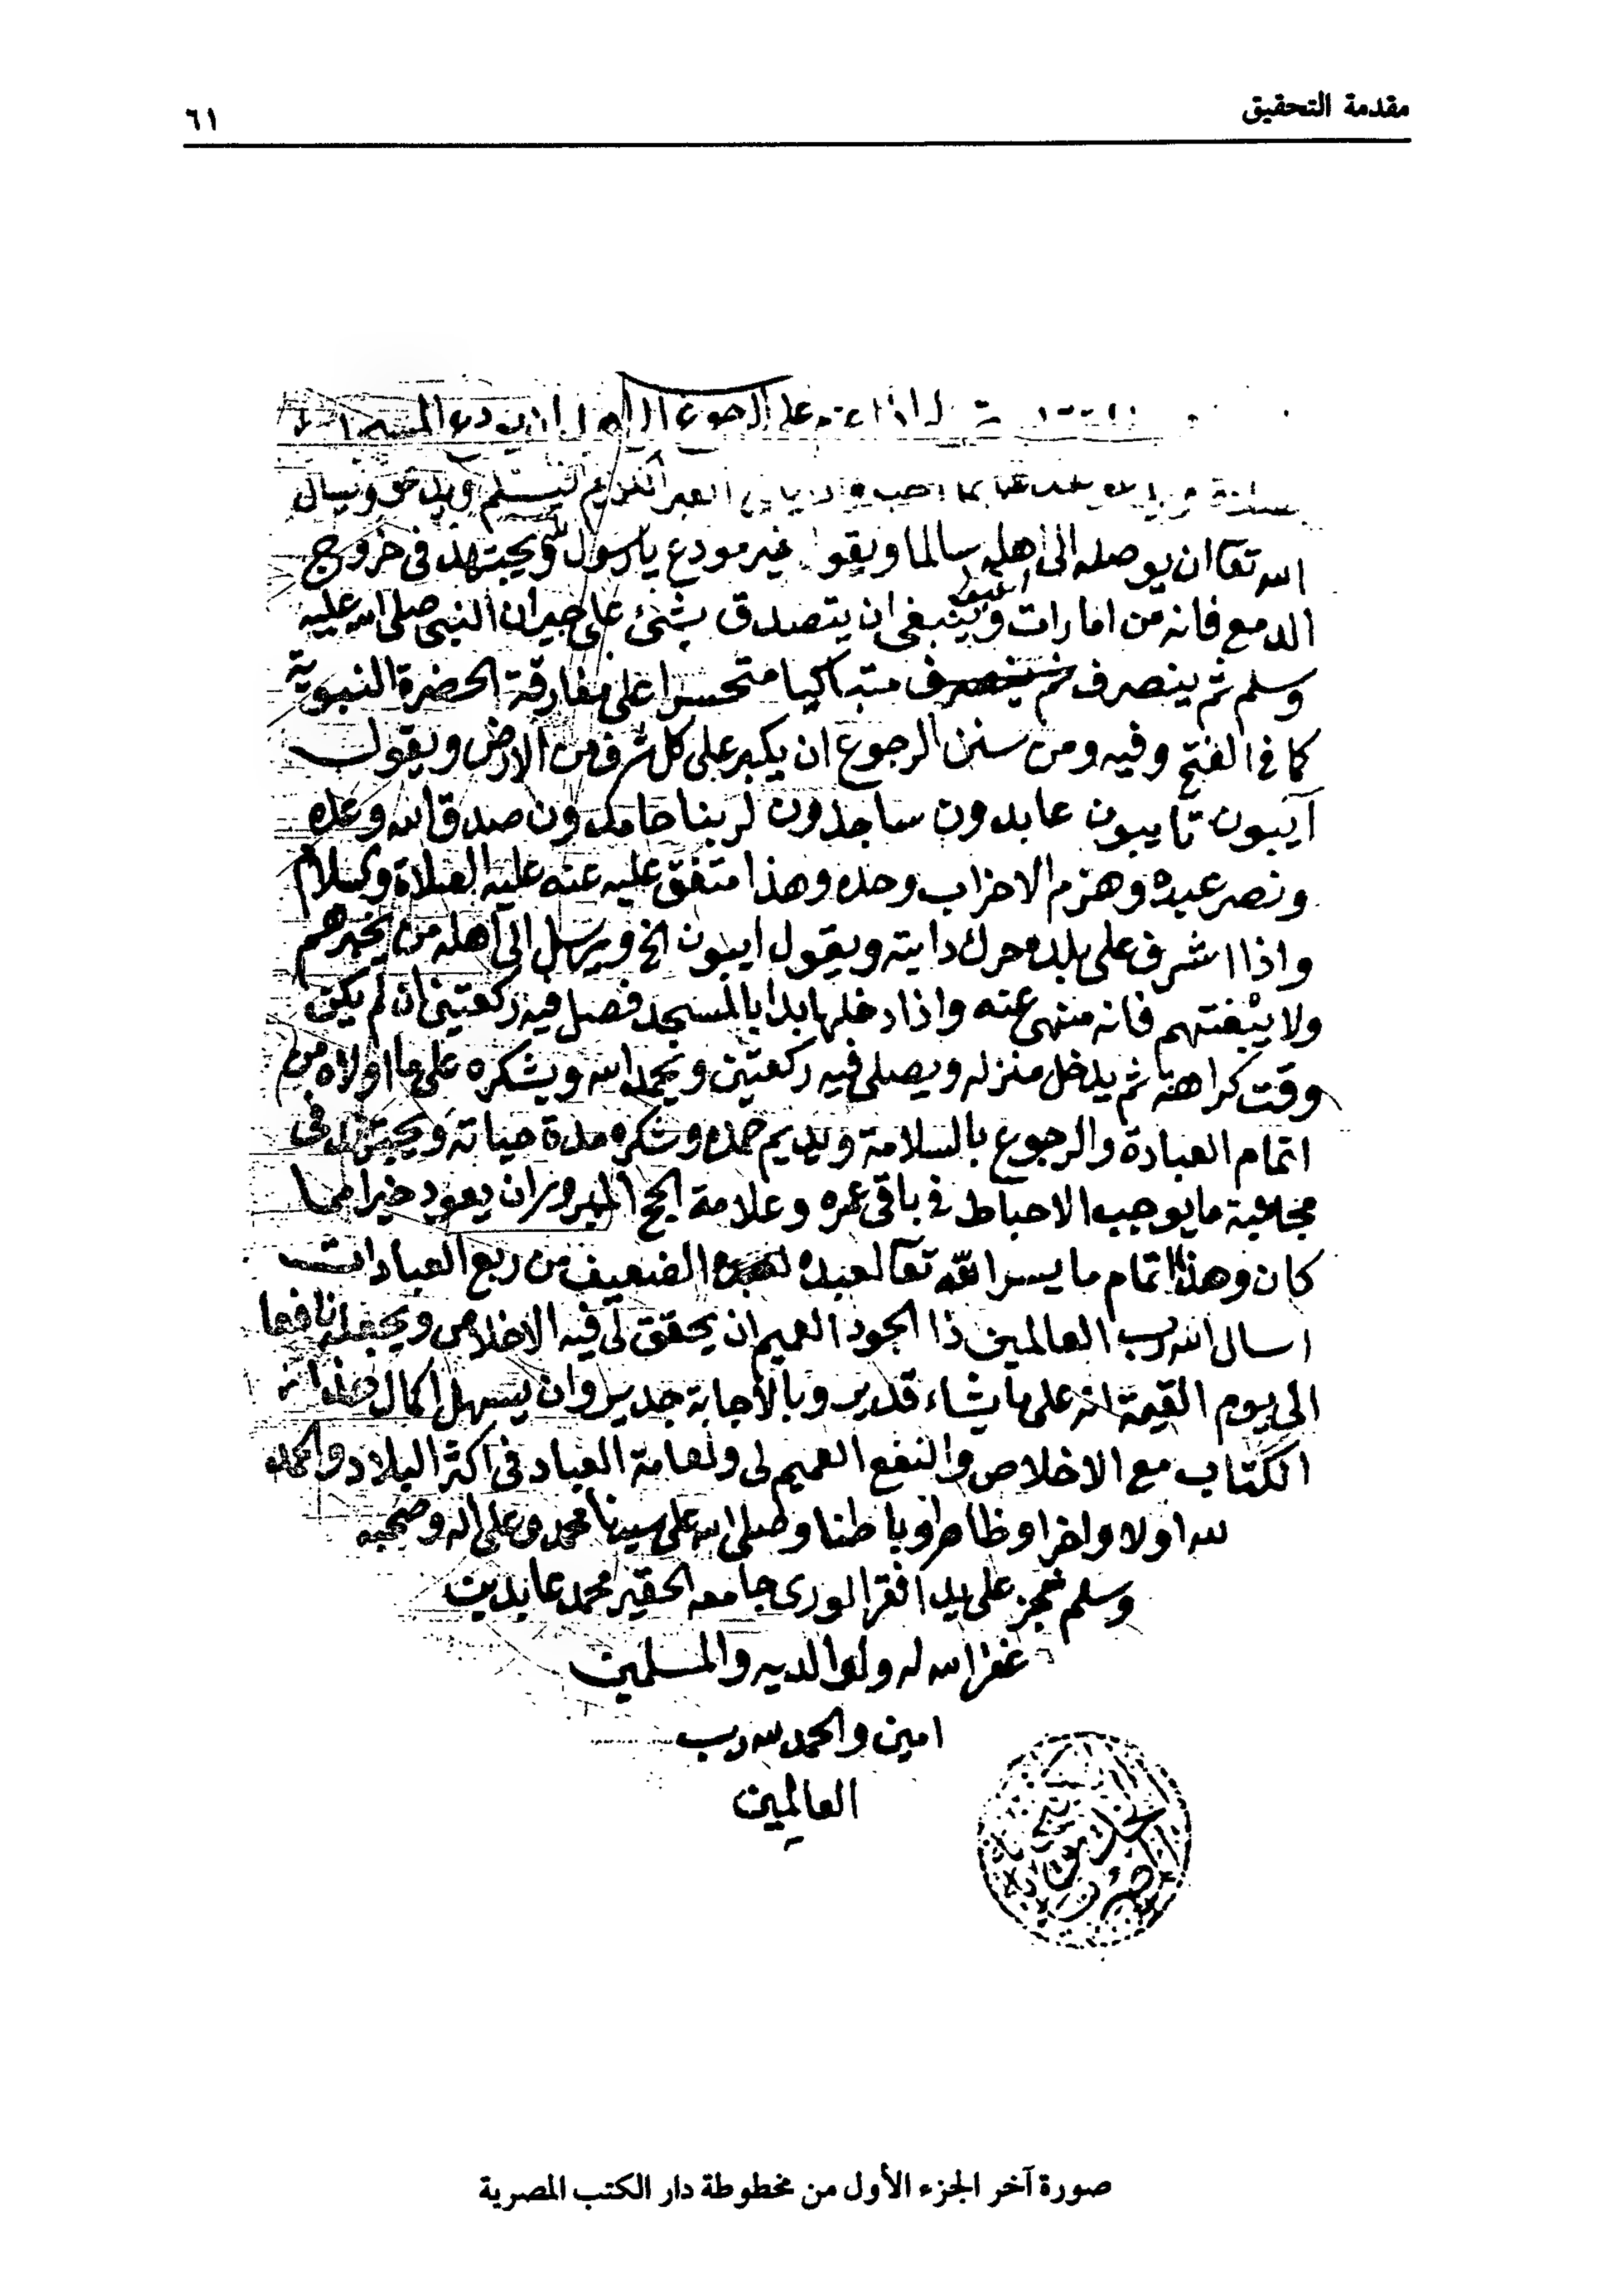 مقدمة التحقيق
٦١
اذا عزم على الرجوع الى اهله ان يودع المسجد
القبر الكريم فيسلم ويدعو ويسال
الله تعا ان يوصله الى اهله سالما ويقول غير مودع يا رسول الله ويجتهد في خروج
الدمع فانه من امارات القبول وينبغي ان يتصدق بشئ على جيران النبي صلى الله عليه
وسلم ثم ينصرف ثم ينصرف متباكيا متحسرا على مفارقة الحضرة النبوية
كما في الفتح وفيه ومن سنن الرجوع ان يكبر على كل شرف من الارض ويقول
آيبون تايبون عابدون ساجدون لربنا حامدون صدق الله وعده
ونصر عبده وهزم الاحزاب وحده وهذا متفق عليه عنه عليه الصلاة والسلام
واذا اشرف على بلده حرك دابته ويقول ايبون الخ ويرسل الى اهله من يخبرهم
ولا يبغتهم فانه منهي عنه واذا دخلها بدا بالمسجد فصلى فيه ركعتين ان لم يكن
وقت كراهة ثم يدخل منزله ويصلي فيه ركعتين ويحمد الله ويشكره على ما اولاه من
اتمام العبادة والرجوع بالسلامة ويديم حمده وشكره مدة حياته ويجتهد في
مجانبة ما يوجب الاحباط في باقي عمره وعلامة الحج المبرور ان يعود خيرا مما
كان وهذا اتمام ما يسر الله تعا لعبده الضعيف من ربع العبادات
اسال الله رب العالمين ذا الجود العميم ان يحقق لي فيه الاخلاص ويجعله نافعا
الى يوم القيمة انه على ما يشاء قدير وبالاجابة جدير وان يسهل اكمال هذا
الكتاب مع الاخلاص والنفع العميم لي ولعامة العباد في اكثر البلاد والحمد
لله اولا واخرا وظاهرا وباطنا وصلى الله على سيدنا محمد وعلى اله وصحبه
وسلم نجز على يد افقر الورى جامعه الحقير محمد عابدين
غفر الله له ولوالديه والمسلمين
امين والحمد لله رب
العالمين
صورة آخر الجزء الأول من مخطوطة دار الكتب المصرية